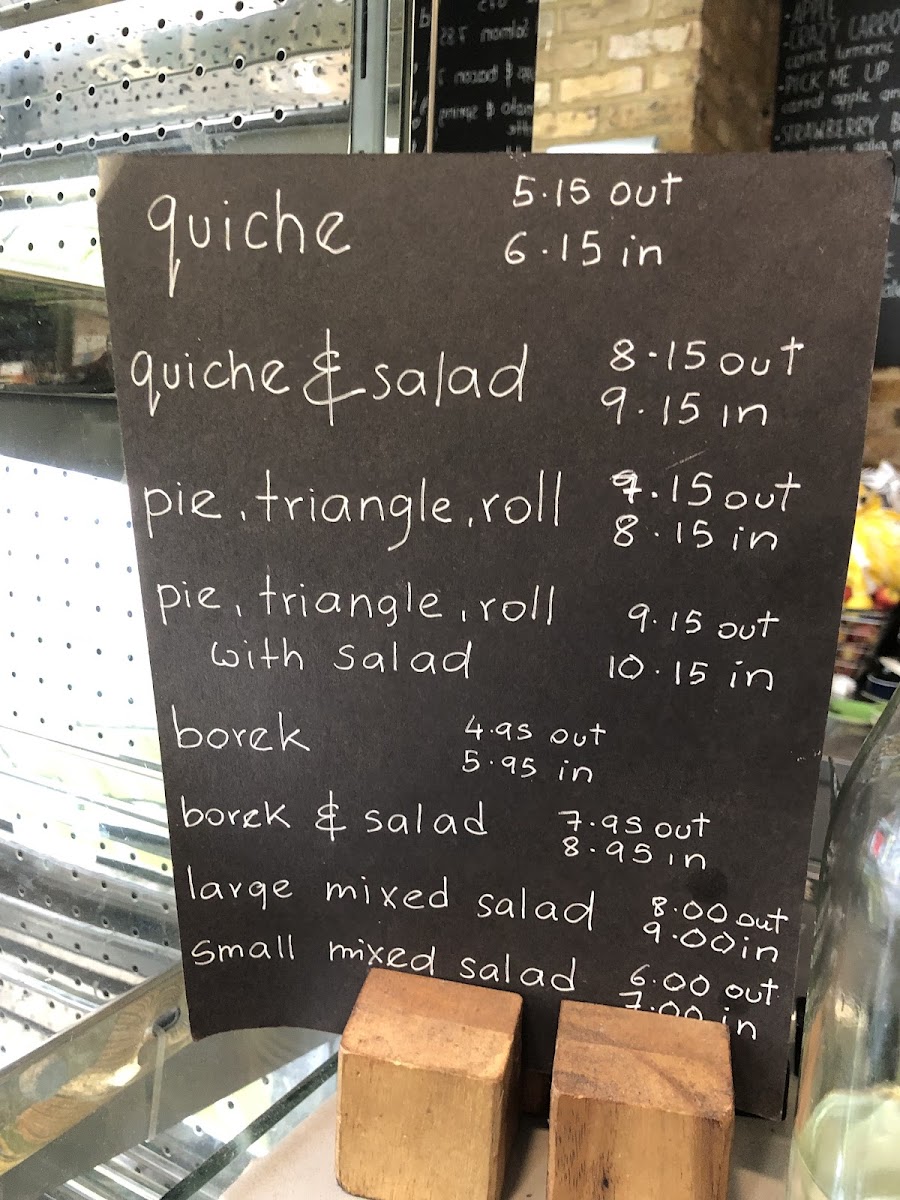 quiche 5.15 out
6.15 in
quiche & salad 8.15 out
9.15 in
pie, triangle, roll 7.15 out
8.15 in
pie, triangle, roll 9.15 out
with salad 10.15 in
borek 4.95 out
5.95 in
borek & salad 7.95 out
8.95 in
large mixed salad 8.00 out
9.00 in
small mixed salad 6.00 out
7.00 in
APPLE
CRAZY
carrot turmeric
PICK ME UP
carrot apple
STRAWBERRY